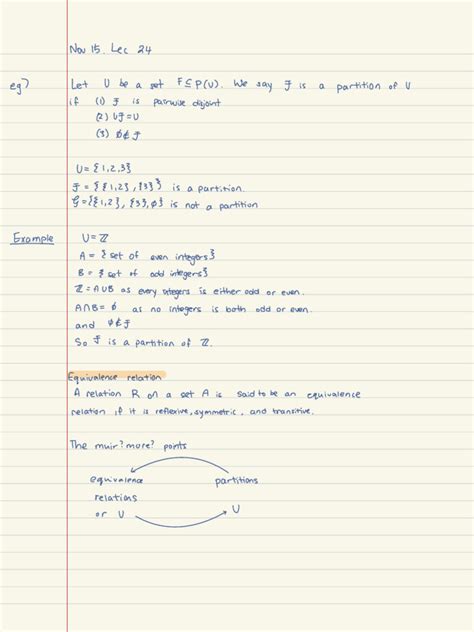 Nov 15. Lec 24
eg7 Let U be a set F⊆P(U). We say F is a partition of U
if (1) F is pairwise disjoint
(2) UF=U
(3) ∅∉F
U={1,2,3}
F={{1,2},{3}} is a partition.
G={{1,2},{3},∅} is not a partition
Example U=ℤ
A = {set of even integers}
B = {set of odd integers}
ℤ=A∪B as every integers is either odd or even.
A∩B=∅ as no integers is both odd or even.
and ∅∉F
So F is a partition of ℤ.
Equivalence relation
A relation R on a set A is said to be an equivalence
relation if it is reflexive, symmetric, and transitive.
The muir?more? points
equivalence partitions
relations
or U U